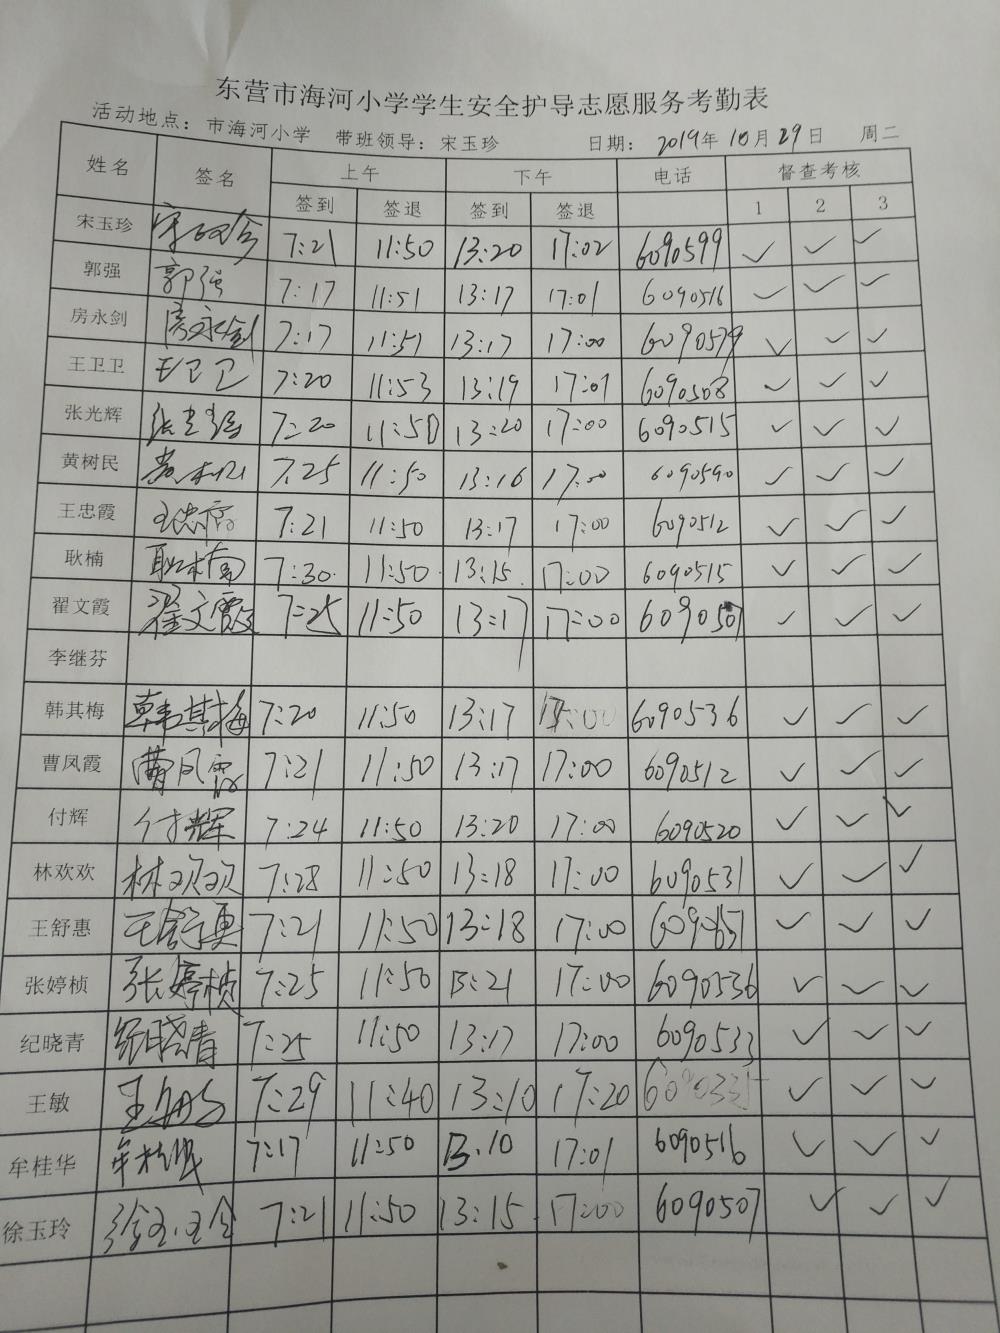 东营市海河小学学生安全护导志愿服务考勤表
活动地点：市海河小学 带班领导：宋玉珍 日期：2019年10月29日 周二
姓名 签名 上午 下午 电话 督查考核
签到 签退 签到 签退 1 2 3
宋玉珍 7:21 11:50 13:20 17:02 6090599 ✓ ✓ ✓
郭强 郭强 7:17 11:51 13:17 17:01 6090516 ✓ ✓ ✓
房永剑 房永剑 7:17 11:51 13:17 17:00 6090579 ✓ ✓ ✓
王卫卫 王卫卫 7:20 11:53 13:19 17:01 6090508 ✓ ✓ ✓
张光辉 张光辉 7:20 11:50 13:20 17:00 6090515 ✓ ✓ ✓
黄树民 黄树民 7:25 11:50 13:16 17:00 6090590 ✓ ✓ ✓
王忠霞 王忠霞 7:21 11:50 13:17 17:00 6090512 ✓ ✓ ✓
耿楠 耿楠 7:30 11:50 13:15 17:00 6090515 ✓ ✓ ✓
翟文霞 翟文霞 7:25 11:50 13:17 17:00 6090507 ✓ ✓ ✓
李继芬
韩其梅 韩其梅 7:20 11:50 13:17 17:00 6090536 ✓ ✓ ✓
曹凤霞 曹凤霞 7:21 11:50 13:17 17:00 6090512 ✓ ✓ ✓
付辉 付辉 7:24 11:50 13:20 17:00 6090520 ✓ ✓ ✓
林欢欢 林欢欢 7:28 11:50 13:18 17:00 6090531 ✓ ✓ ✓
王舒惠 王舒惠 7:21 11:50 13:18 17:00 ✓ ✓ ✓
张婷桢 张婷桢 7:25 11:50 13:21 17:00 6090536 ✓ ✓ ✓
纪晓青 纪晓青 7:25 11:50 13:17 17:00 6090533 ✓ ✓ ✓
王敏 王敏 7:29 11:40 13:10 17:20 ✓ ✓ ✓
牟桂华 牟桂华 7:17 11:50 13:10 17:01 6090516 ✓ ✓ ✓
徐玉玲 徐玉玲 7:21 11:50 13:15 17:00 6090507 ✓ ✓ ✓